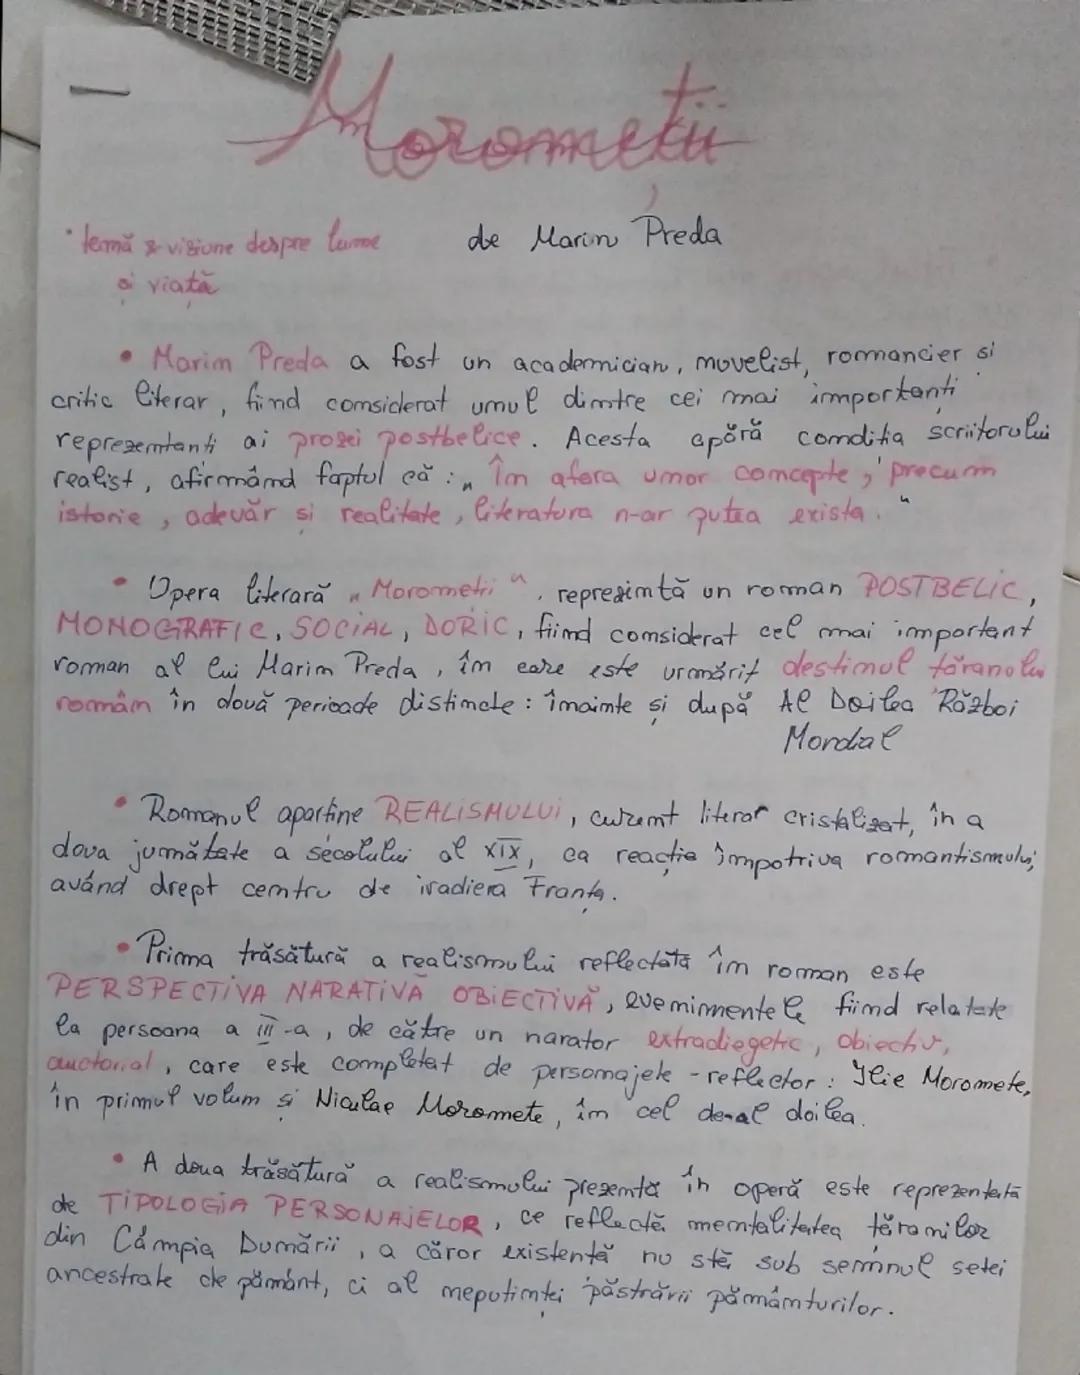 Moromeții
• temă & viziune despre lume de Marin Preda
și viață
• Marin Preda a fost un academician, nuvelist, romancier și
critic literar, fiind considerat unul dintre cei mai importanți
reprezentanți ai prozei postbelice. Acesta apără condiția scriitorului
realist, afirmând faptul că: „În afara unor concepte, precum
istorie, adevăr și realitate, literatura n-ar putea exista."
• Opera literară „Moromeții", reprezintă un roman POSTBELIC,
MONOGRAFIC, SOCIAL, DORIC, fiind considerat cel mai important
roman al lui Marin Preda, în care este urmărit destinul țăranului
român în două perioade distincte: înainte și după Al Doilea Război
Mondial
• Romanul aparține REALISMULUI, curent literar cristalizat, în a
doua jumătate a secolului al XIX, ca reacție împotriva romantismului,
având drept centru de iradiera Franța.
• Prima trăsătură a realismului reflectată în roman este
PERSPECTIVA NARATIVĂ OBIECTIVĂ, evenimentele fiind relatate
la persoana a III-a, de către un narator extradiegetic, obiectiv,
auctorial, care este completat de personajele-reflector: Ilie Moromete,
în primul volum și Niculae Moromete, în cel de-al doilea.
• A doua trăsătură a realismului prezentă în operă este reprezentată
de TIPOLOGIA PERSONAJELOR, ce reflectă mentalitatea țăranilor
din Câmpia Dunării, a căror existență nu stă sub semnul setei
ancestrale de pământ, ci al neputinței păstrării pământurilor.